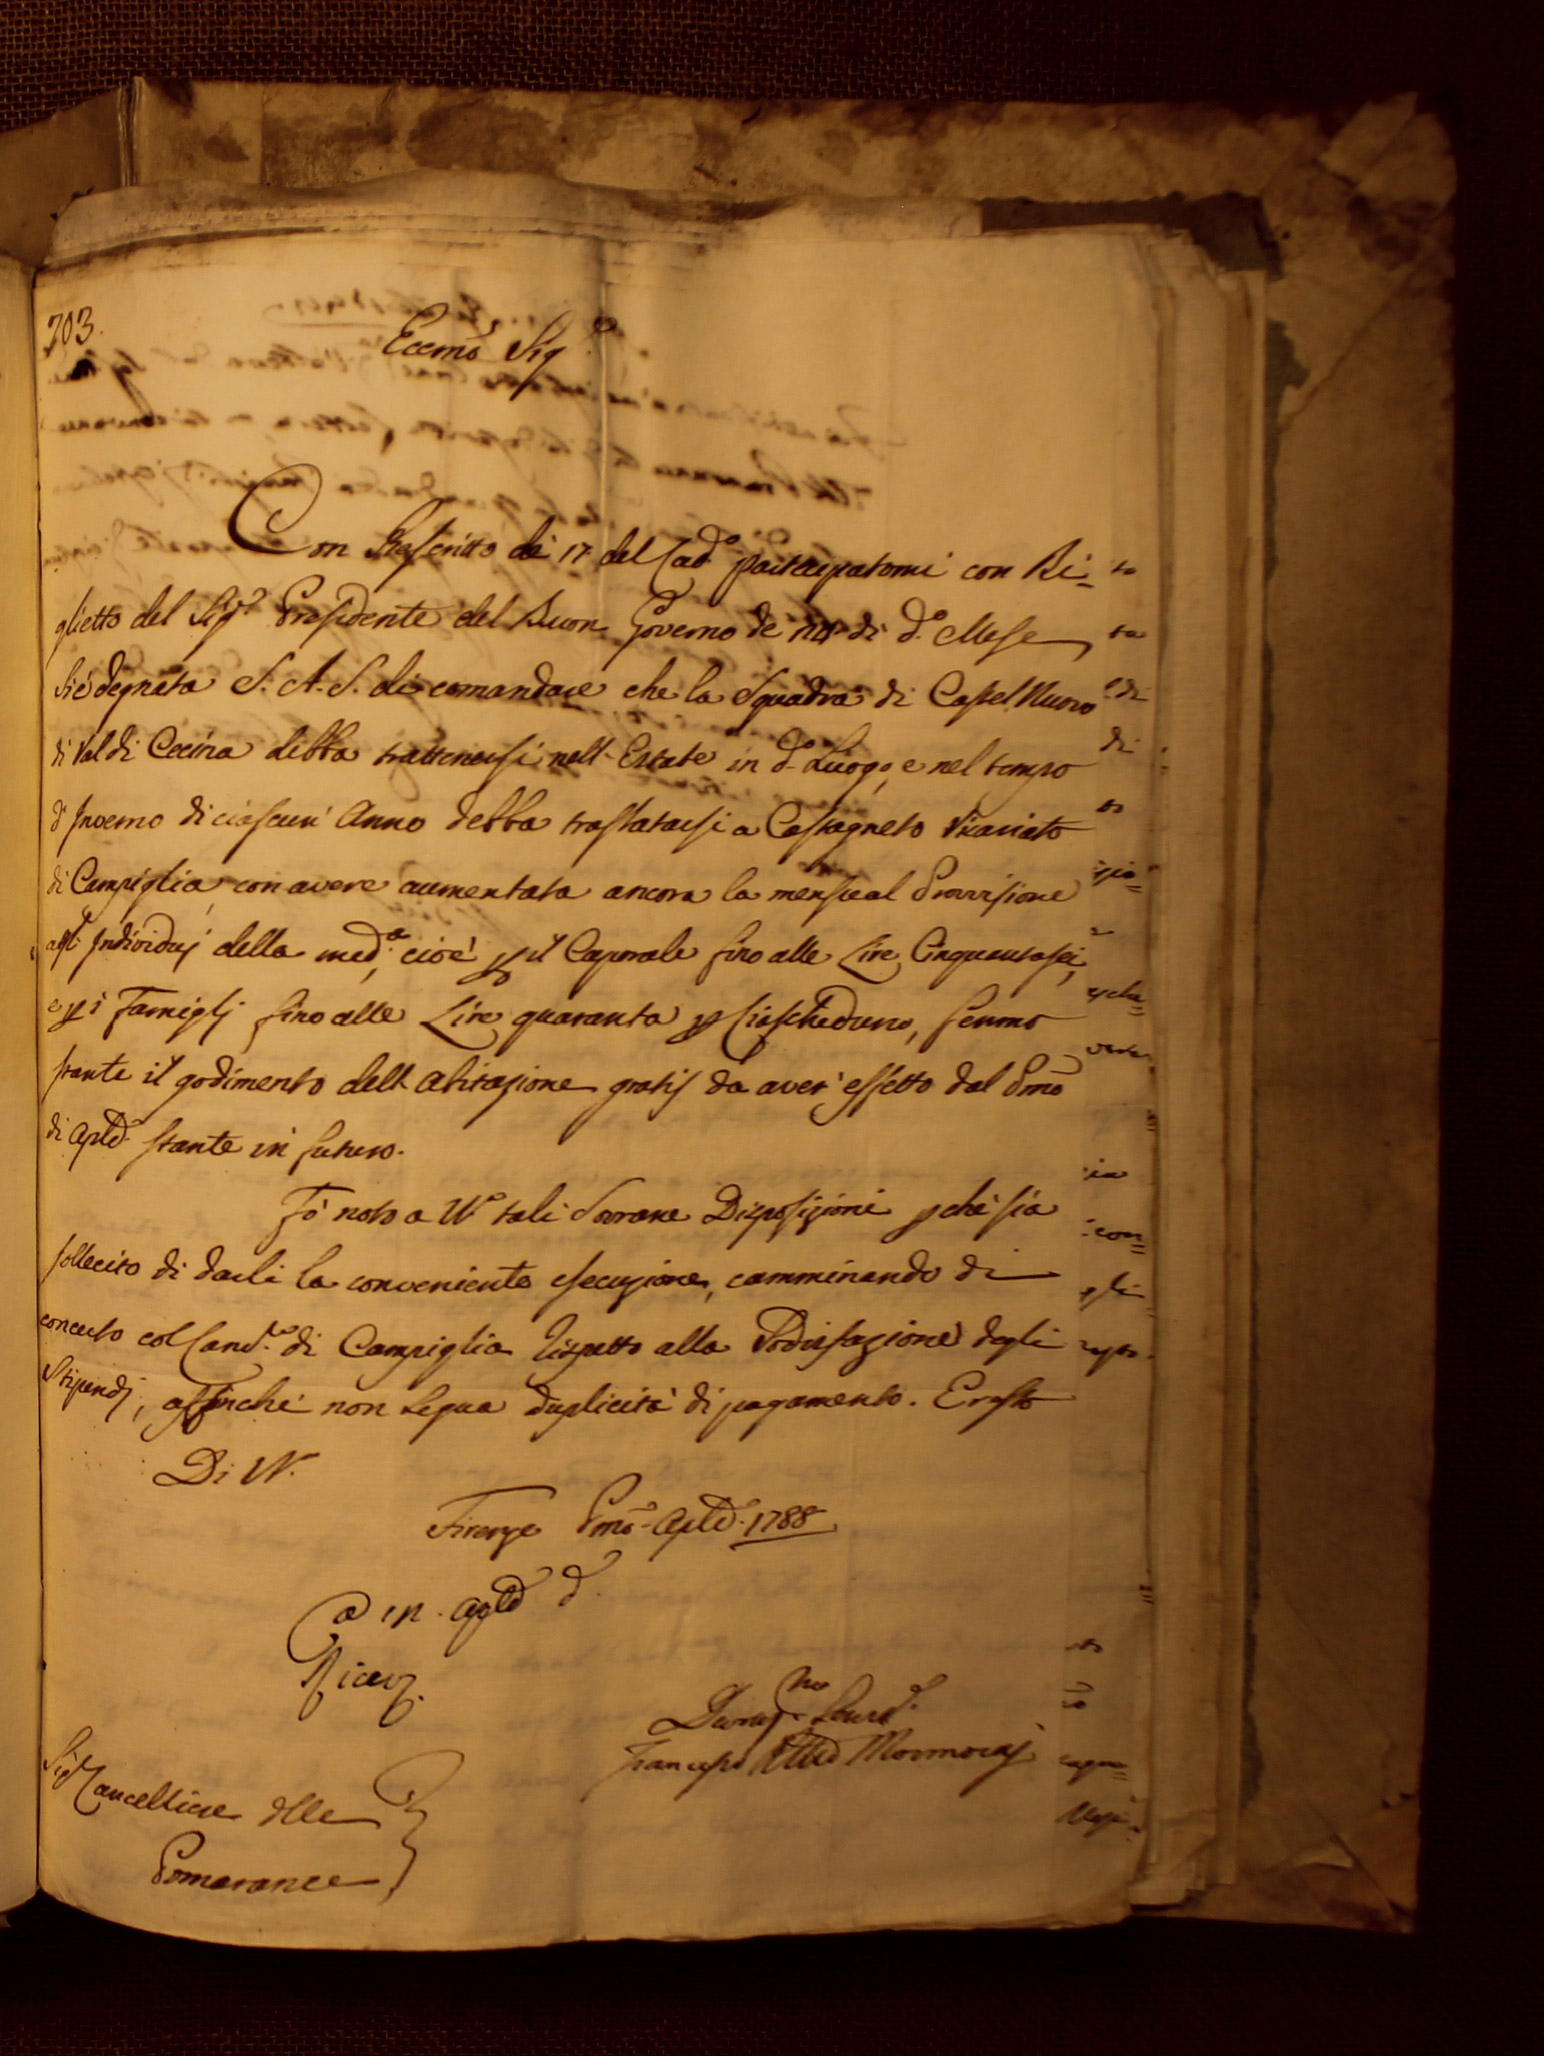 703.
Eccmo Sig.re
Con Rescritto de' 17 del Cad.o partecipatomi con Bi=
glietto del Sig.r Presidente del Buon Governo de di d.o Mese,
si è degnata S. A. S. di comandare che la Squadra di Castel Nuovo
di Val di Cecina debba trattenersi nell'Estate in d.o Luogo, e nel tempo
d'Inverno di ciascun' Anno debba traslatarsi a Castagneto Vicariato
di Campiglia, con avere aumentata ancora la mensual Provvisione
agl'Individuj della med.a, cioè p il Caporale fino alle Lire Cinquantasei,
e p i Famiglj fino alle Lire quaranta p Ciascheduno, fermo
stante il godimento dell'Abitazione gratis da aver' effetto dal Pmo
di Aple stante in futuro.
Fò noto a VS tali Sovrane Disposizioni pchè sia
sollecito di darli la conveniente esecuzione, camminando di
concerto col Canc.re di Campiglia rispetto alla Sodisfazione degli
Stipendj, affinchè non segua duplicità di pagamento. E resto
Di VS.
Firenze Pmo Aple 1788
Aple d.o
Ricev.
Francesco Mormoraj
Sig.r Cancelliere delle
Pomarance